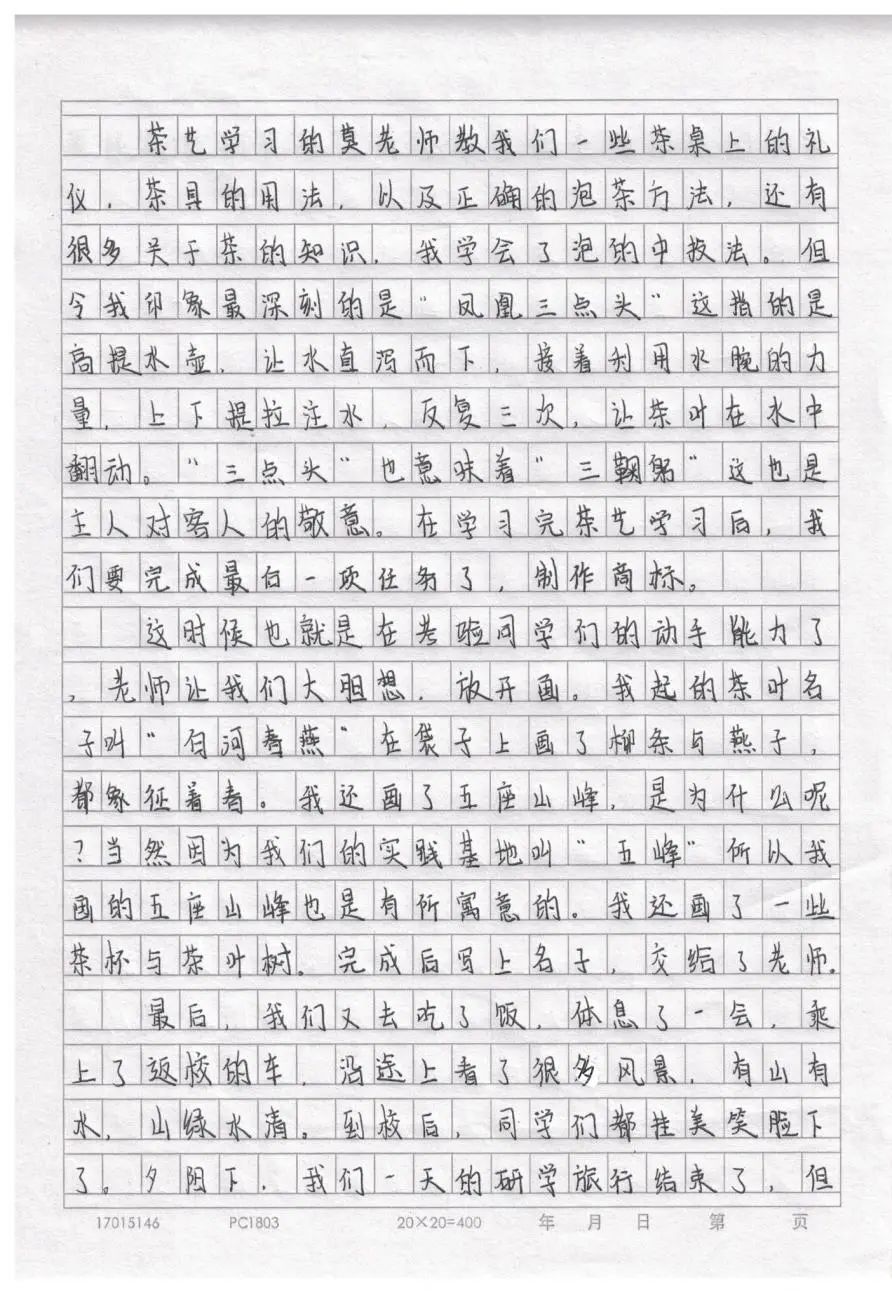 茶艺学习的莫老师教我们一些茶桌上的礼
仪，茶具的用法，以及正确的泡茶方法，还有
很多关于茶的知识，我学会了泡的中技法。但
令我印象最深刻的是“凤凰三点头”这指的是
高提水壶，让水直泻而下，接着利用水腕的力
量，上下提拉注水，反复三次，让茶叶在水中
翻动。“三点头”也意味着“三鞠躬”这也是
主人对客人的敬意。在学习完茶艺学习后，我
们要完成最后一项任务了，制作商标。
这时候也就是在考验同学们的动手能力了
，老师让我们大胆想，放开画。我起的茶叶名
子叫“白河春燕”在袋子上画了柳条与燕子，
都象征着春。我还画了五座山峰，是为什么呢
？当然因为我们的实践基地叫“五峰”所以我
画的五座山峰也是有所寓意的。我还画了一些
茶杯与茶叶树。完成后写上名子，交给了老师。
最后，我们又去吃了饭，体息了一会，乘
上了返校的车，沿途上看了很多风景，有山有
水，山绿水清。到校后，同学们都挂美笑脸下
了。夕阳下，我们一天的研学旅行结束了，但
17015146 PC1803 20×20=400 年 月 日 第 页